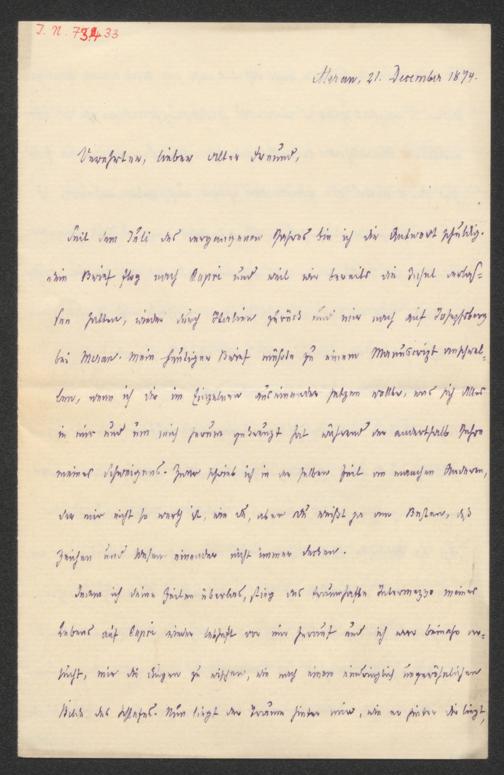 J. N. 73433
Meran, 21. December 1874.
Verehrter, lieber alter Freund,
Seit dem Juli des vergangenen Jahres bin ich die Antwort schuldig.
Dein Brief flog nach Capri und weil wir bereits die Insel verlas-
sen hatten, wieder durch Italien zurück und mir nach auf Josephsberg
bei Meran. Mein heutiger Brief müßte zu einem Manuscript anschwel-
len, wenn ich Dir im Einzelnen auseinander setzen wollte, was sich Alles
in mir und um mich herum gedrängt hat während der anderthalb Jahre
meines Schweigens. Zwar schrieb ich in der selben Zeit an manchen Anderen,
der mir nicht so werth ist, wie Du, aber Du weißt ja am Besten, daß
Zeichen und Wesen einander nicht immer decken.
Indem ich Deine Zeilen überlas, stieg das traumhafte Intermezzo meines
Lebens auf Capri wieder lebhaft vor mir herauf und ich war beinahe ver-
sucht, mir die Augen zu wischen, wie nach einem ungewöhnlichen
Bilde des Schlafes. Nun liegt der Traum hinter mir, wie er hinter Dir liegt,